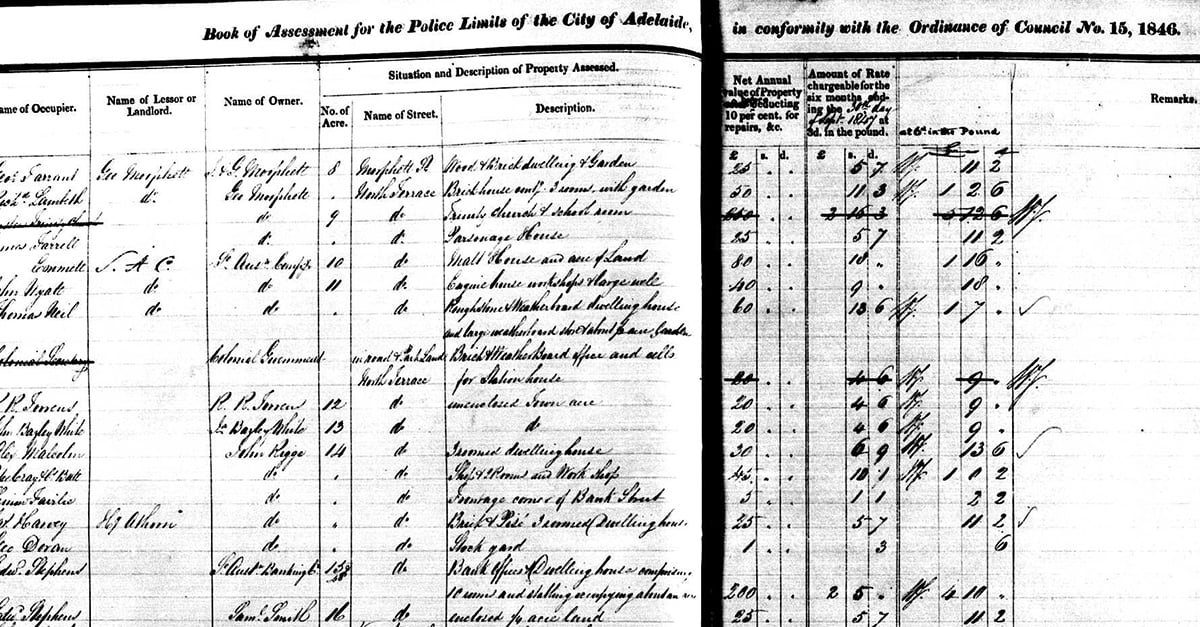 Book of Assessment for the Police Limits of the City of Adelaide, in conformity with the Ordinance of Council No. 15, 1846.
Situation and Description of Property Assessed.
ame of Occupier. Name of Lessor or Landlord. Name of Owner. No. of Acre. Name of Street. Description. Net Annual value of Property deducting 10 per cent. for repairs, &c. Amount of Rate chargeable for the six months ending the 30th day of Sept. 1847 at 3d. in the pound. at 6d. in the Pound Remarks.
£ s. d. £ s. d.
Farrant Geo Morphett J. & G. Morphett 8 Morphett St Wood & Brick dwelling & Garden 25 . . 5 7 11 2
Lambeth do. Geo Morphett . North Terrace Brick house 3 rooms with garden 50 . . 11 3 1 2 6
do 9 do church & school room 2 5 12 6
Farrell do. . do. Parsonage House 25 . . 5 7 11 2
Emmett S. A. C. 10 do Malt House and acre of Land 80 . . 18 " 1 16 "
hn Wyatt do do 11 do Engine house workshops & large well 40 . . 9 " 18 "
homas Neil do do . do Rough stone & Weatherboard dwelling house 60 . . 13 6 1 7 "
and large weatherboard store & about acre Garden
Colonial Government Park Land Brick & Weather Board office and cells
North Terrace for Station house 20 . . 4 6 9 "
R Torrens R. R. Torrens 12 do unenclosed Town acre 20 . . 4 6 9 "
hn Bagley White Bagley White 13 do do 20 . . 4 6 9 "
Malcolm John Rigge 14 do 3 roomed dwelling house 30 . . 6 9 13 6
do . do Shop & Rooms and Work Shop 45 . . 10 1 1 0 2
Fairlie do . do Frontage corner of Bank Street 5 . . 1 1 2 2
Harvey do . do Brick & Pisé 3 roomed Dwelling house 25 . . 5 7 11 2
eo Doran do . do Stock yard 1 . . 3 6
Stephens Banking Co do Bank Offices & Dwelling house comprising
10 rooms and stabling occupying about an 200 . . 2 5 " 4 10 "
Stephens Saml Smith 16 do enclosed ½ acre land 25 . . 5 7 11 2